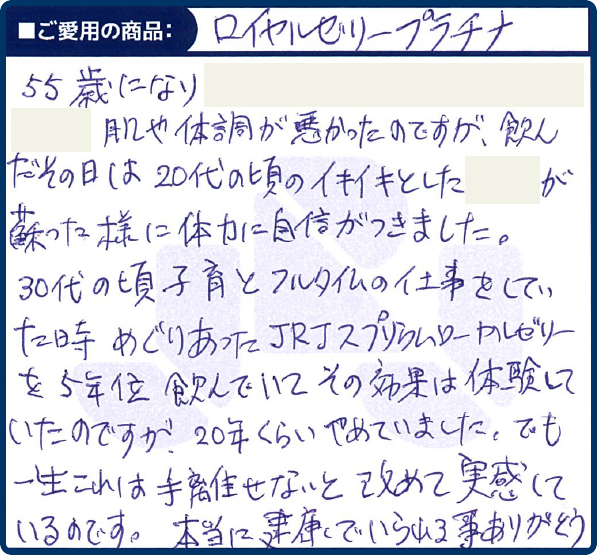 ■ご愛用の商品: ロイヤルゼリープラチナ
55歳になり
肌や体調が悪かったのですが、飲ん
だその日は20代の頃のイキイキとした が
蘇った様に体力に自信がつきました。
30代の頃子育とフルタイムの仕事をしてい
た時めぐりあったJRJスプリウムローヤルゼリー
を5年位飲んでいてその効果は体験して
いたのですが、20年くらいやめていました。でも
一生これは手離せないと改めて実感して
いるのです。本当に健康でいられる事ありがとう